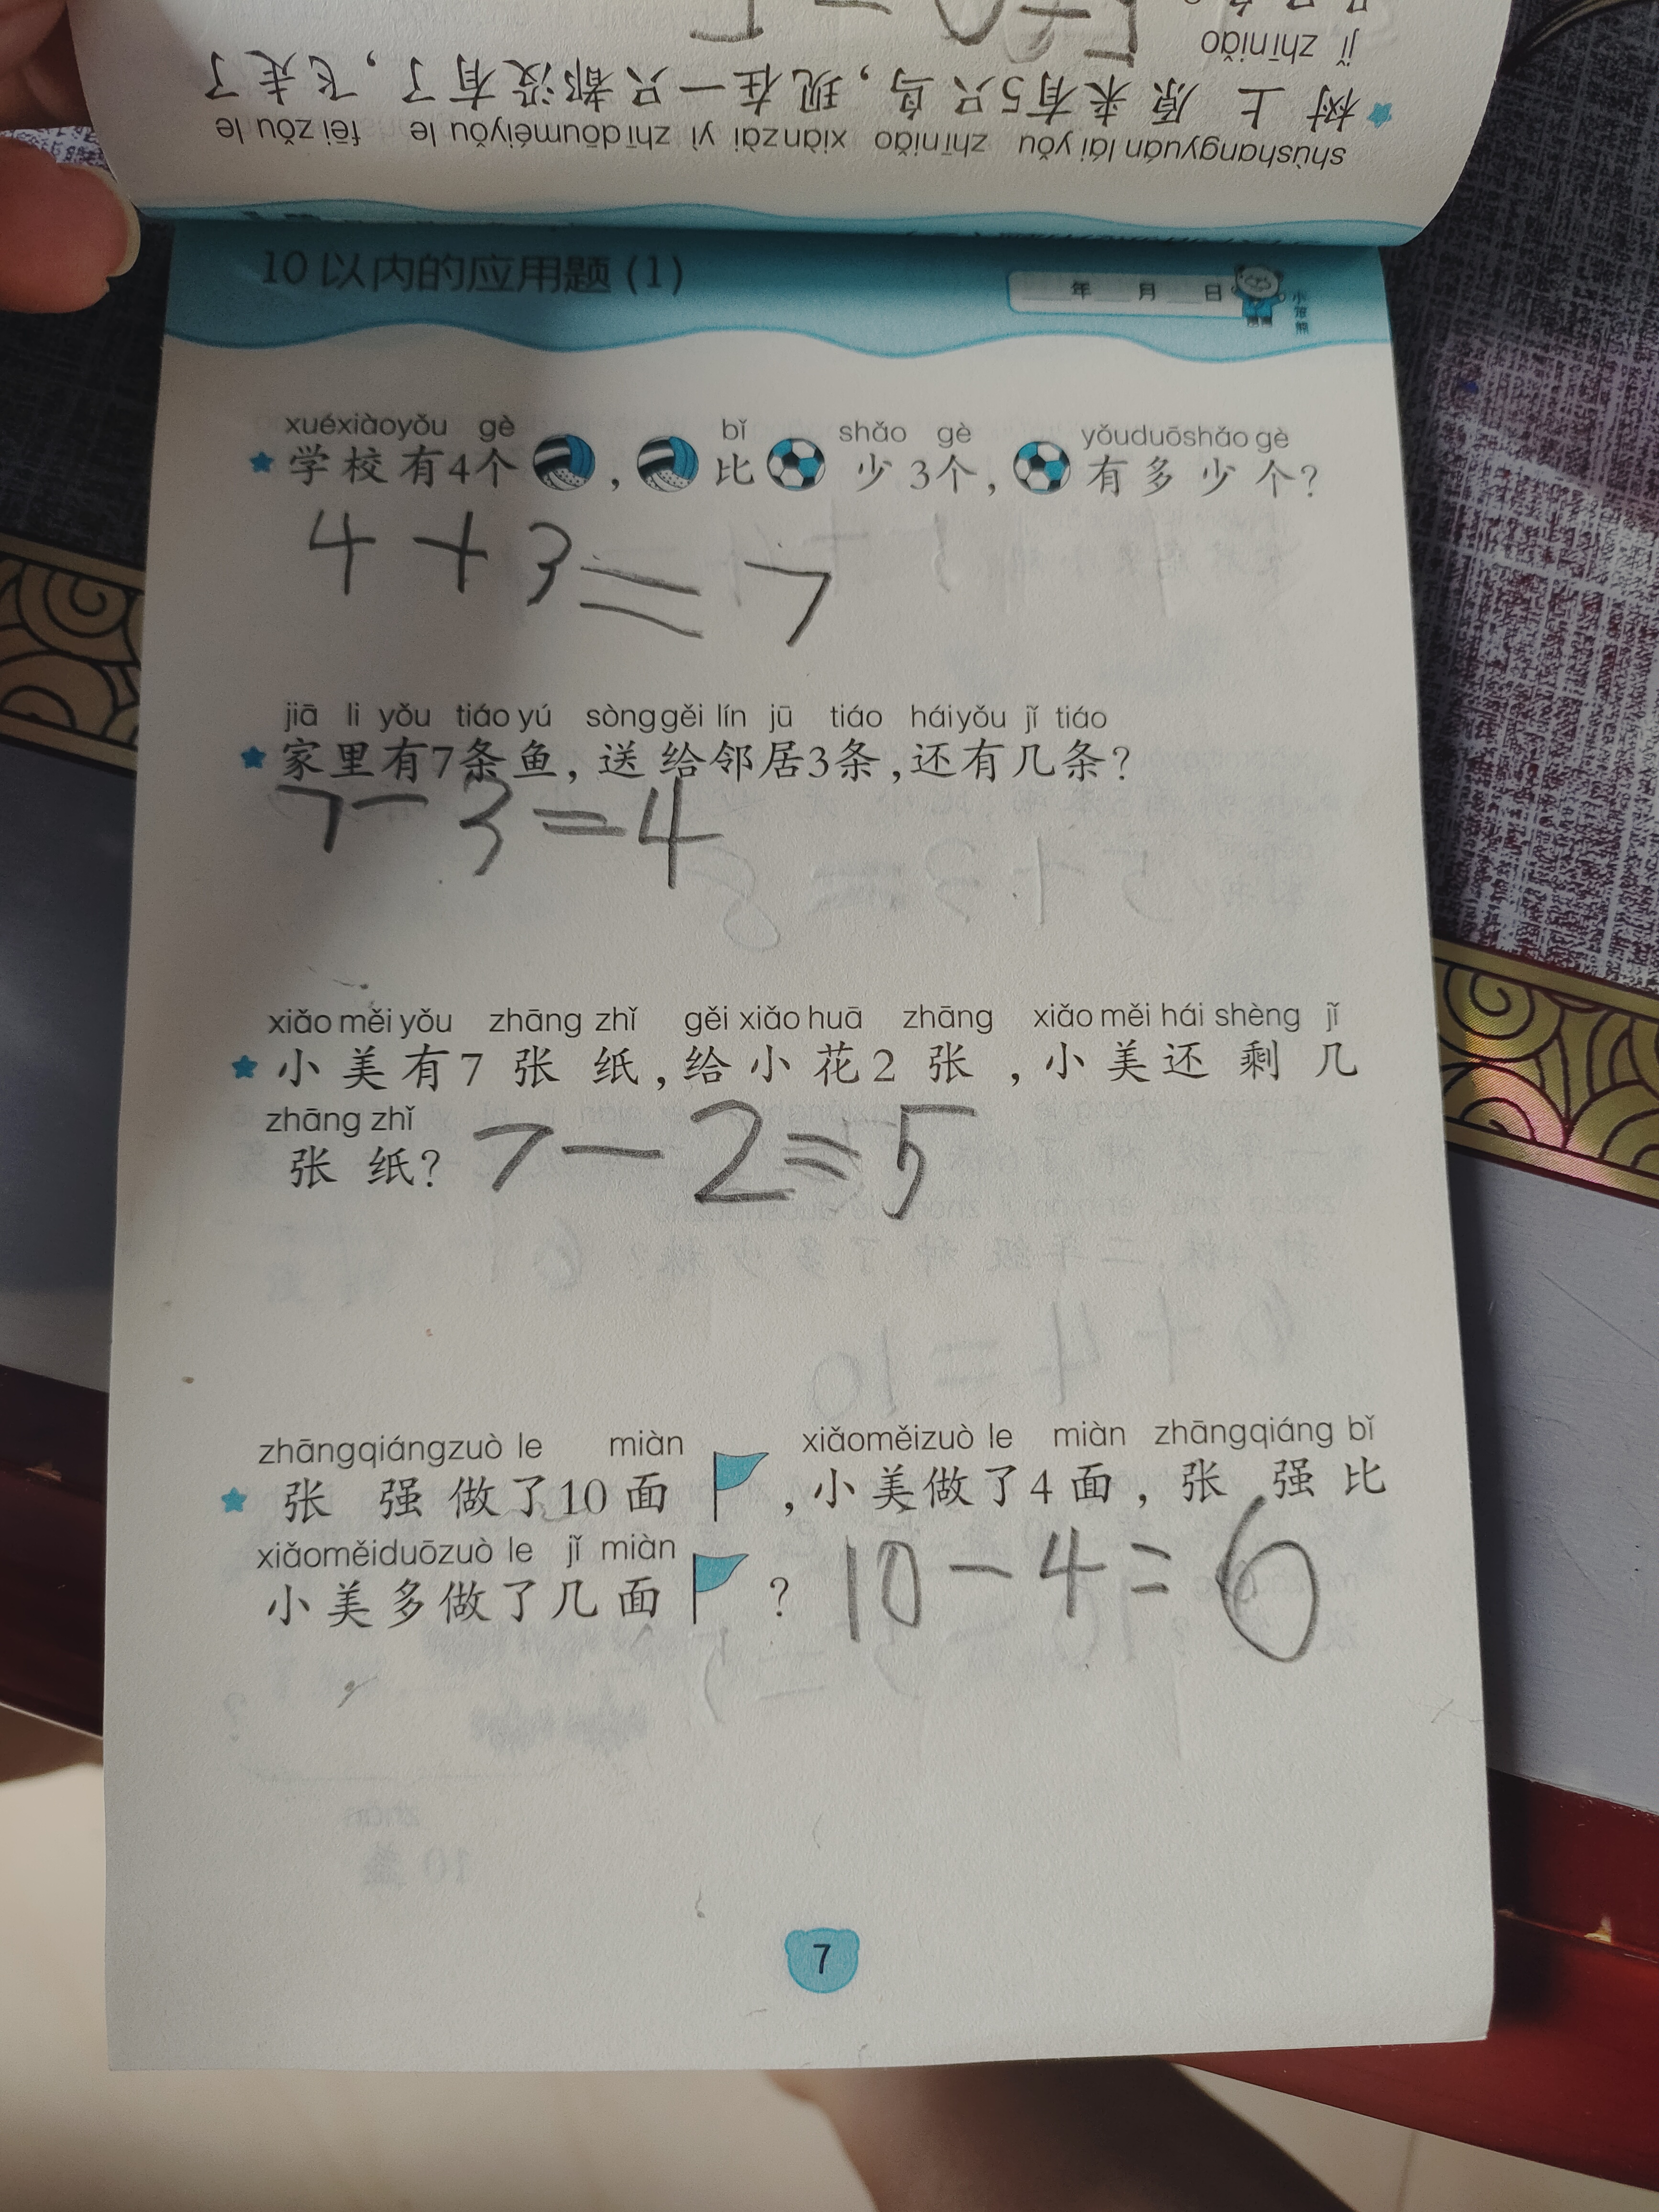 shùshangyuán lái yǒu zhīniǎo xiànzài yì zhīdōuméiyǒu le fēi zǒu le
树上原来有5只鸟，现在一只都没有了，飞走了
jǐ zhīniǎo
10以内的应用题(1)
年 月 日
小笨熊
xuéxiàoyǒu gè bǐ shǎo gè yǒuduōshǎo gè
学校有4个，比少3个，有多少个？
4+3=7
jiā li yǒu tiáo yú sònggěi lín jū tiáo háiyǒu jǐ tiáo
家里有7条鱼，送给邻居3条，还有几条？
7-3=4
xiǎo měi yǒu zhāng zhǐ gěi xiǎo huā zhāng xiǎo měi hái shèng jǐ
小美有7张纸，给小花2张，小美还剩几
zhāng zhǐ
张纸？ 7-2=5
zhāngqiángzuò le miàn xiǎoměizuò le miàn zhāngqiáng bǐ
张强做了10面，小美做了4面，张强比
xiǎoměiduōzuò le jǐ miàn
小美多做了几面？ 10-4=6
7